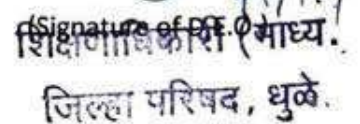 (Signature of D.E.O)
शिक्षणाधिकारी (माध्य.
जिल्हा परिषद, धुळे.